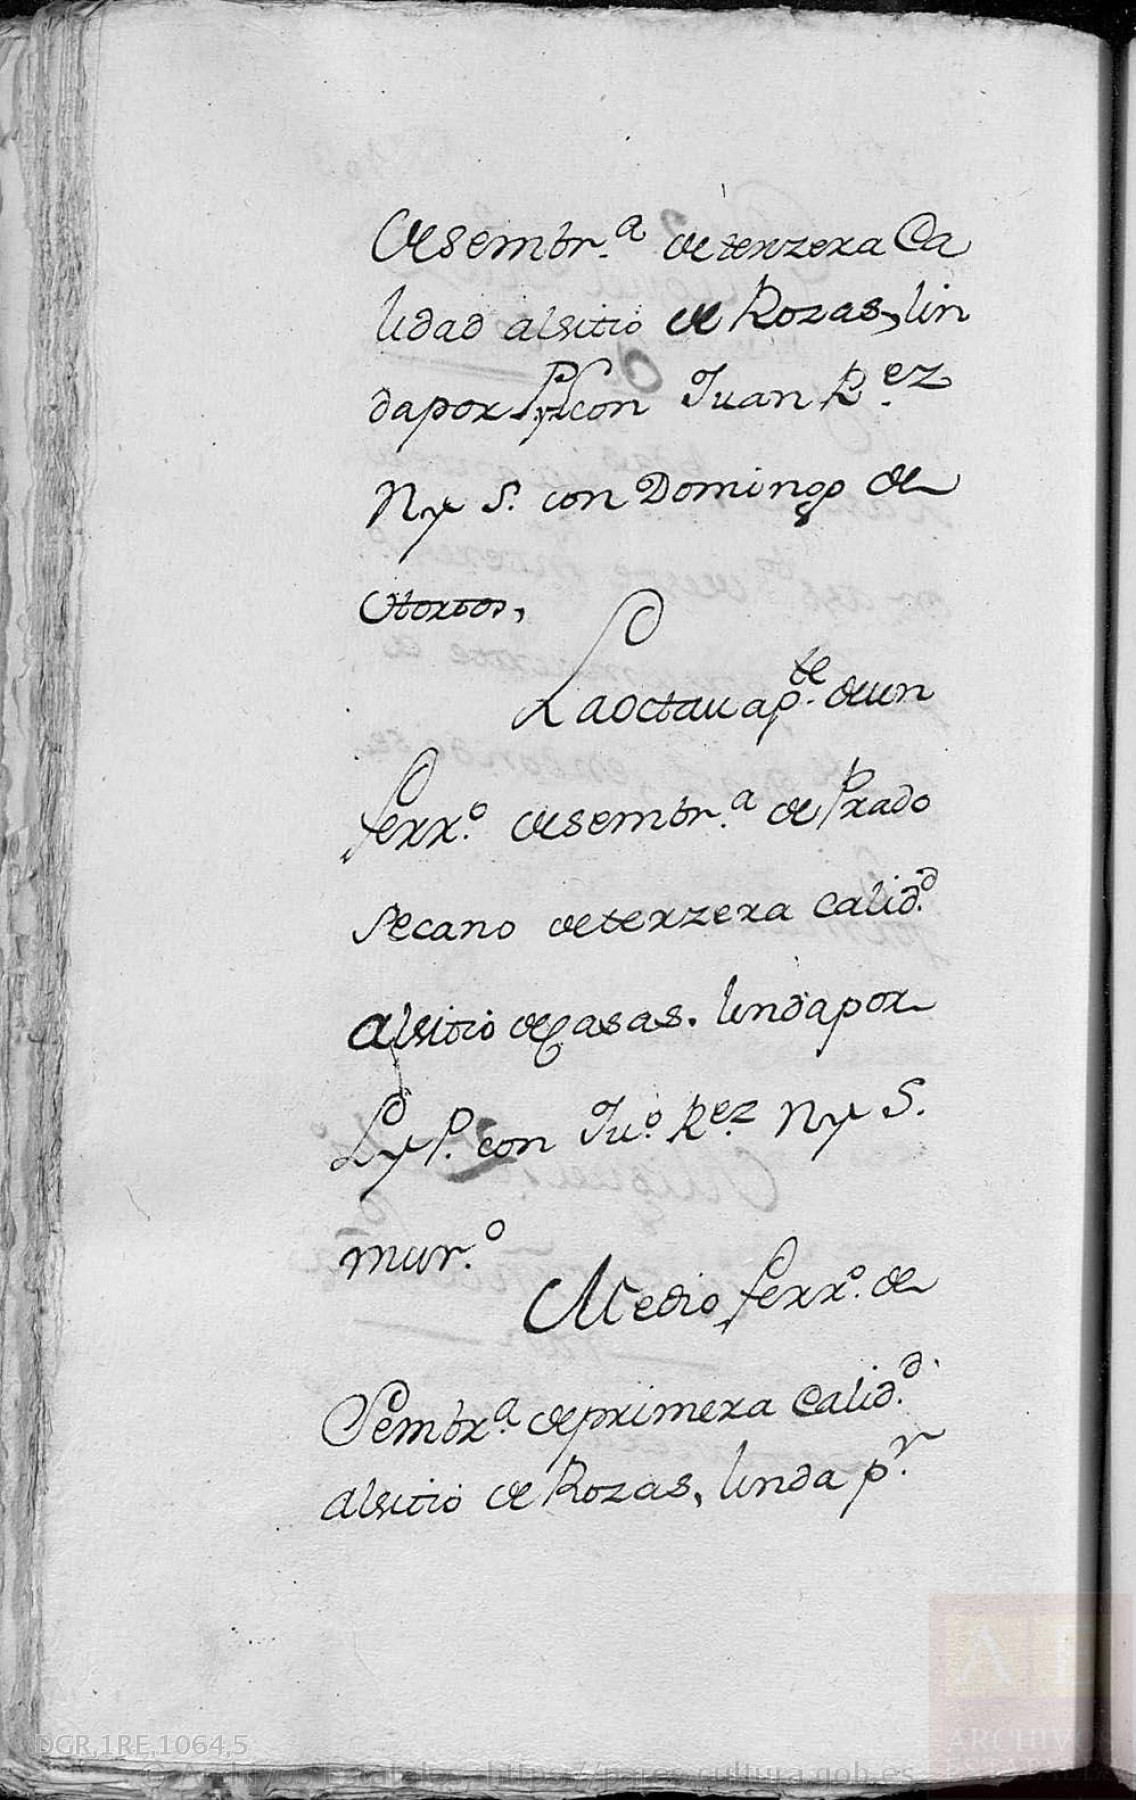 de sembr.ª de terzera Ca
lidad al sitio de Rozas, lin
da por con Juan R.ez
N y S. con Domingo de
Otoxos,
La octaua p.te de un
ferr.º de sembr.ª de Prado
Secano de terzera calid.d
al sitio de Casas. linda por
L y P. con Ju.º R.ez N y S.
mur.º
Medio ferr.º de
Sembr.ª de primera Calid.d
al sitio de Rozas, linda p.r
DGR,1RE,1064,5
© Archivos Estatales, https://pares.cultura.gob.es
ARCHIVOS
ESTATALES